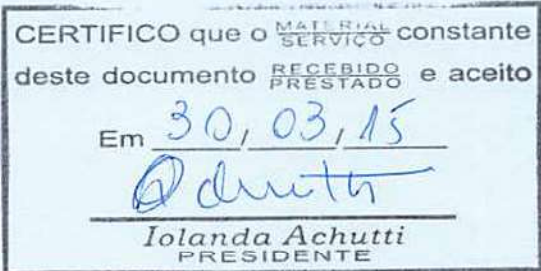 CERTIFICO que o MATERIAL/SERVIÇO constante
deste documento RECEBIDO/PRESTADO e aceito
Em 30, 03, 15
Iolanda Achutti
PRESIDENTE